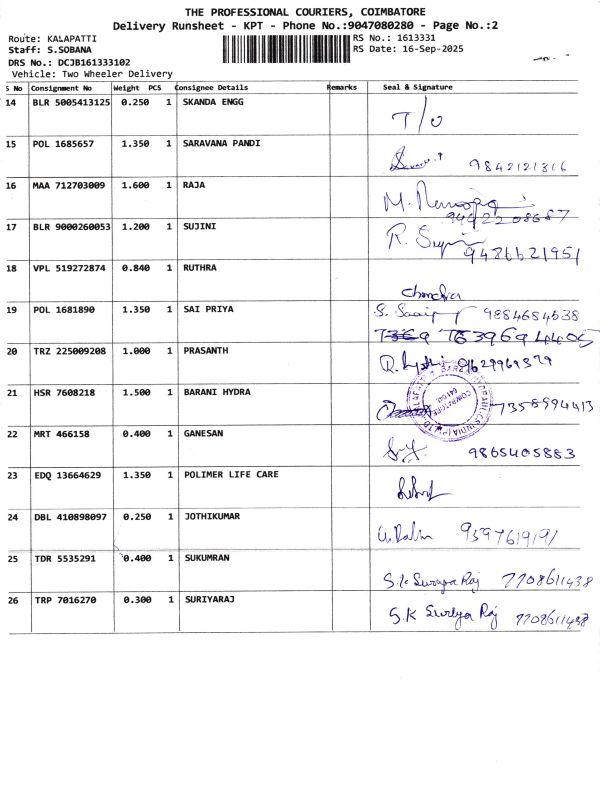 THE PROFESSIONAL COURIERS, COIMBATORE
Delivery Runsheet - KPT - Phone No.:9047080280 - Page No.:2
Route: KALAPATTI
RS No.: 1613331
Staff: S.SOBANA
RS Date: 16-Sep-2025
DRS No.: DCJB161333102
Vehicle: Two Wheeler Delivery
S No Consignment No Weight PCS Consignee Details Remarks Seal & Signature
14 BLR 5005413125 0.250 1 SKANDA ENGG T/O
15 POL 1685657 1.350 1 SARAVANA PANDI 9842121316
16 MAA 712703009 1.600 1 RAJA M. 9442208687
17 BLR 9000260053 1.200 1 SUJINI R. Sujini 9486621951
18 VPL 519272874 0.840 1 RUTHRA Chandra
19 POL 1681890 1.350 1 SAI PRIYA S. 9884684538
7639694405
20 TRZ 225009208 1.000 1 PRASANTH 9629961379
21 HSR 7608218 1.500 1 BARANI HYDRA 7358994413
22 MRT 466158 0.400 1 GANESAN 9865405883
23 EDQ 13664629 1.350 1 POLIMER LIFE CARE
24 DBL 410898097 0.250 1 JOTHIKUMAR 9597619191
25 TDR 5535291 0.400 1 SUKUMRAN S.K Suriya Raj 7708611438
26 TRP 7016270 0.300 1 SURIYARAJ S.K Suriya Raj 7708611438